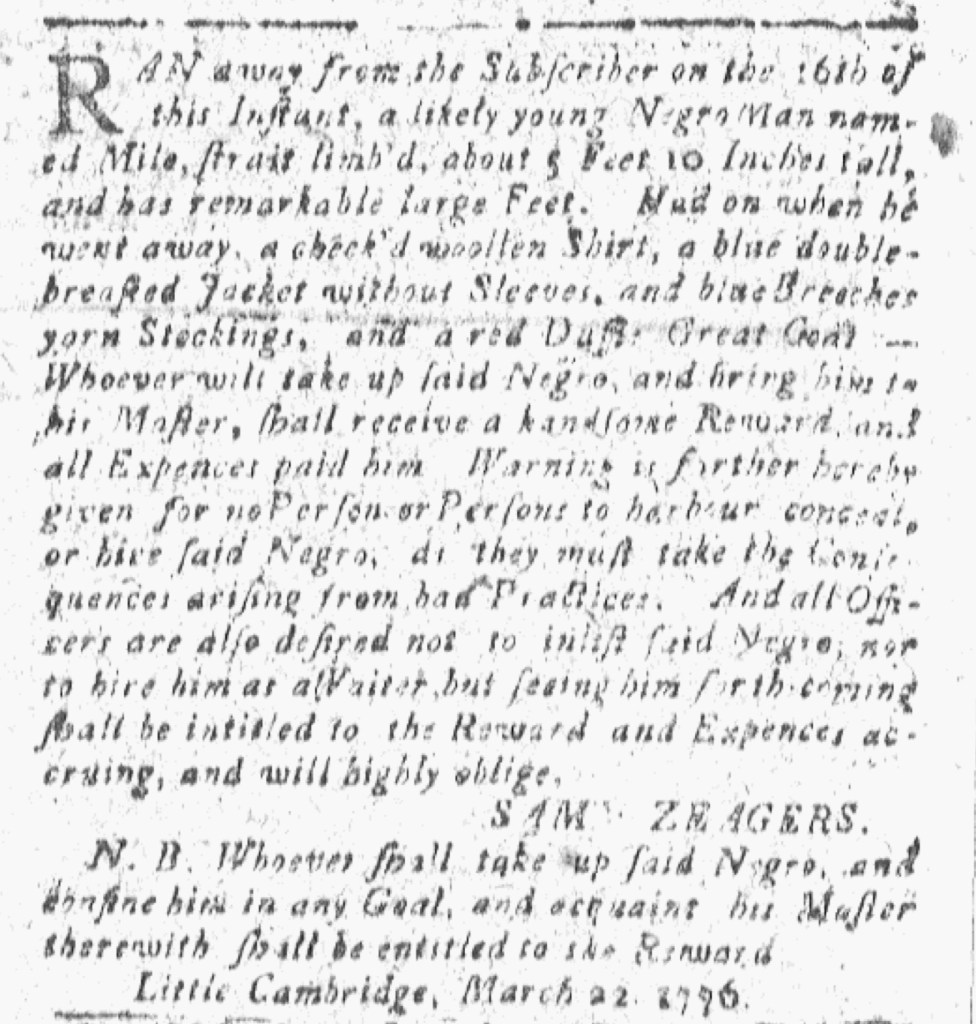 RAN away from the Subſcriber on the 16th of
this Inſtant, a likely young Negro Man nam-
ed Milo, ſtrait limb'd, about 5 Feet 10 Inches tall,
and has remarkable large Feet. Had on when he
went away, a check'd woollen Shirt, a blue double-
breaſted Jacket without Sleeves, and blue Breeches
yorn Stockings, and a red Great Coat —
Whoever will take up ſaid Negro, and bring him to
his Maſter, ſhall receive a handſome Reward, and
all Expences paid him Warning is further hereby
given for no Perſon or Perſons to harbour conceal,
or hire ſaid Negro, as they muſt take the Conſe-
quences ariſing from bad Practices. And all Offi-
cers are alſo deſired not to inliſt ſaid Negro, nor
to hire him as a Waiter, but ſeeing him forth-coming
ſhall be intitled to the Reward and Expences ac-
cruing, and will highly oblige,
SAM ZEAGERS.
N. B. Whoever ſhall take up ſaid Negro, and
confine him in any Goal, and acquaint his Maſter
therewith ſhall be entitled to the Reward
Little Cambridge, March 22. 1776.